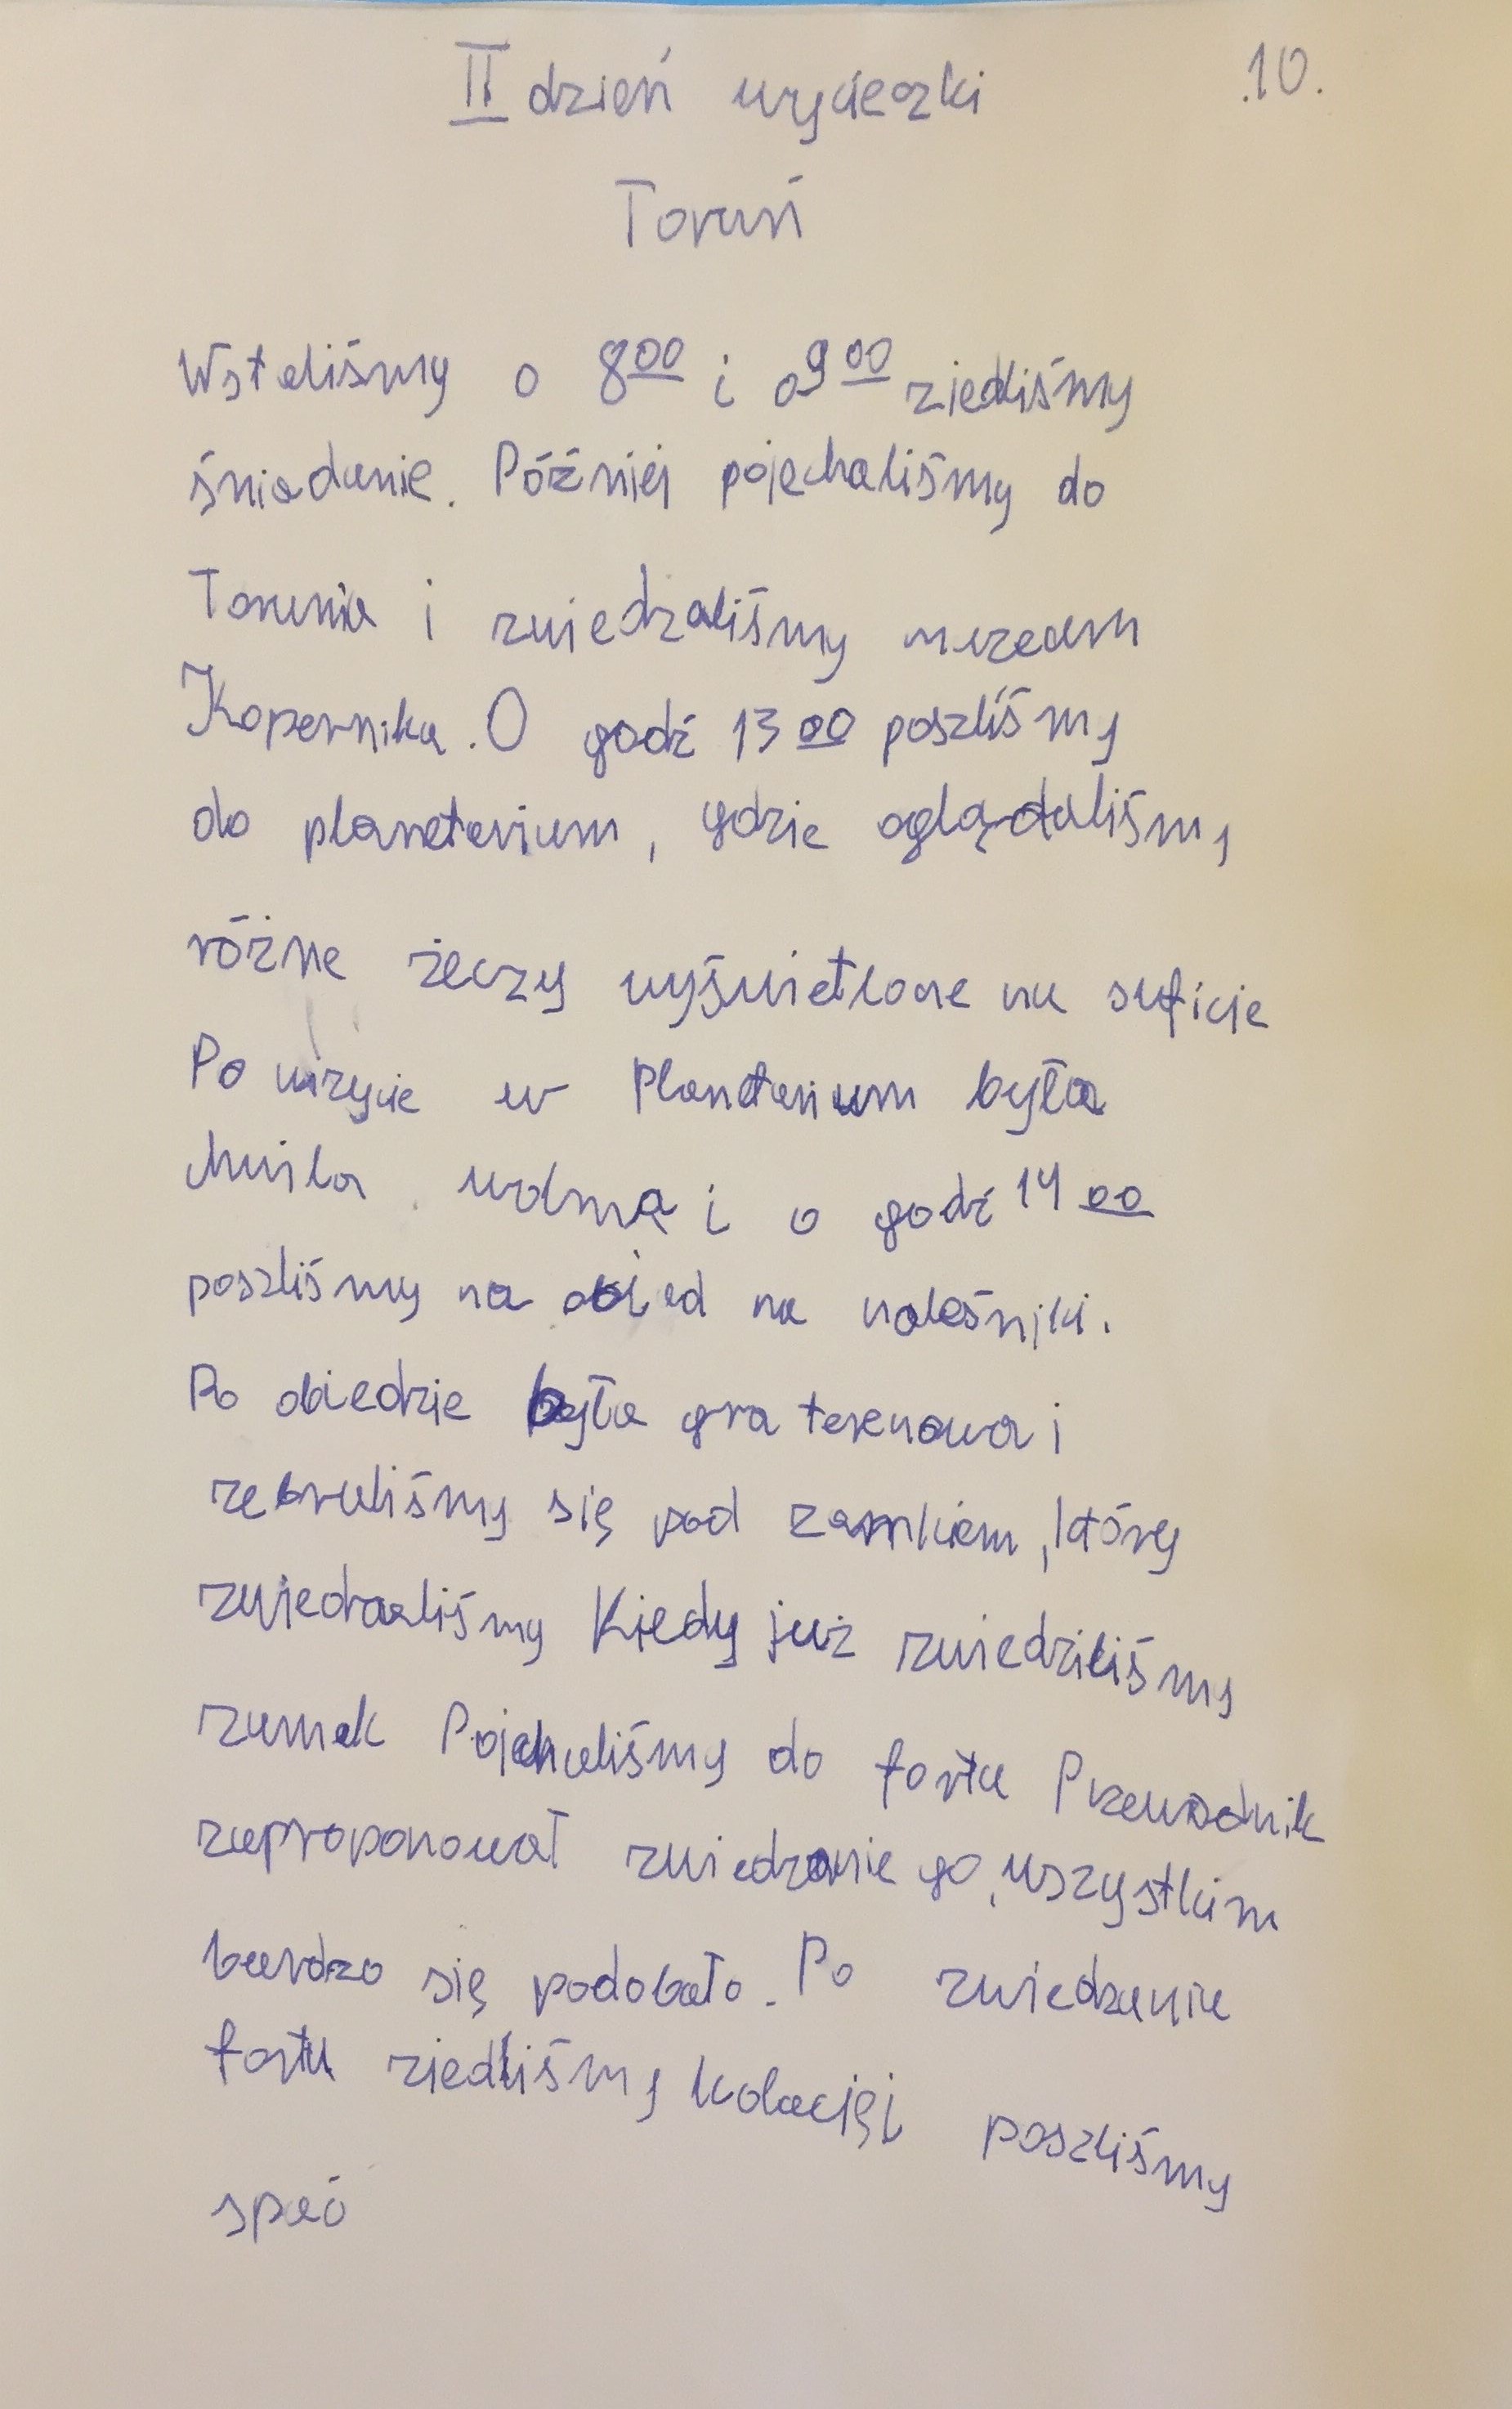 II dzień wycieczki .10.
Toruń
Wstaliśmy o 8 00 i o 9 00 ziedliśmy
śniadanie. Później pojechaliśmy do
Torunia i zwiedzaliśmy muzeum
Kopernika. O godź 13 00 poszliśmy
do planetarium, gdzie oglądaliśmy
różne żeczy wyświetlone na suficie
Po wizycie w Planetarium była
chwila wolna i o godź 14 00
poszliśmy na obied na naleśniki.
Po obiedzie była gra terenowa i
zebraliśmy się pod zamkiem, który
zwiedzaliśmy Kiedy już zwiedziliśmy
zamek Pojechaliśmy do fortu Przewodnik
zaproponował zwiedzanie go, wszystkim
bardzo się podobało. Po zwiedzaniu
fortu ziedliśmy kolację i poszliśmy
spać